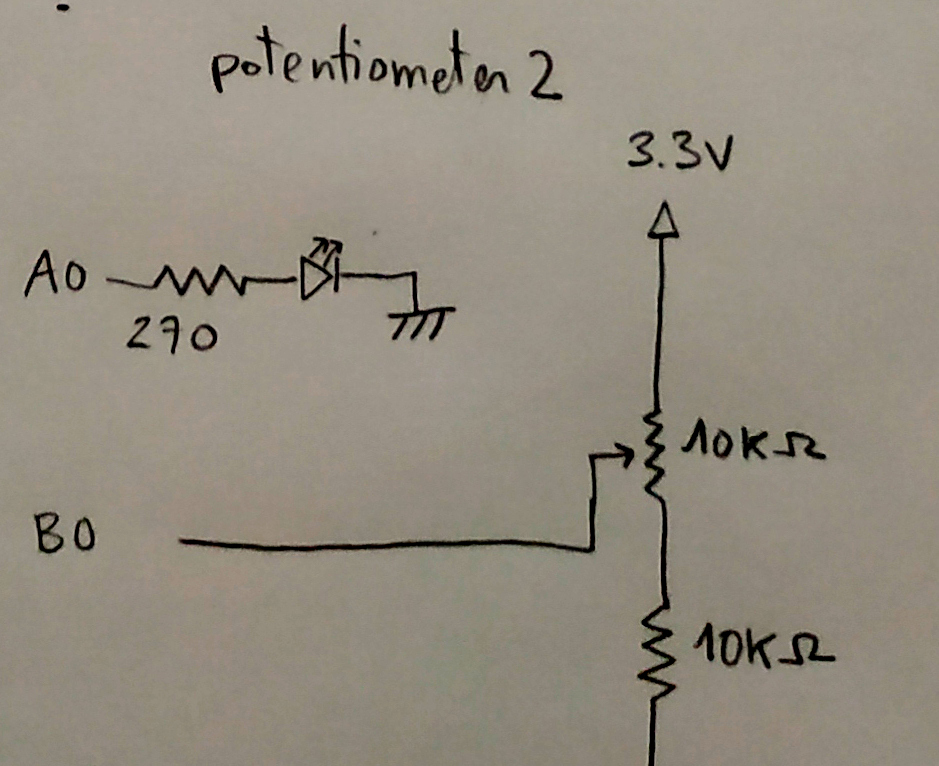 potentiometer 2
3.3V
A0
270
10KΩ
B0
10KΩ